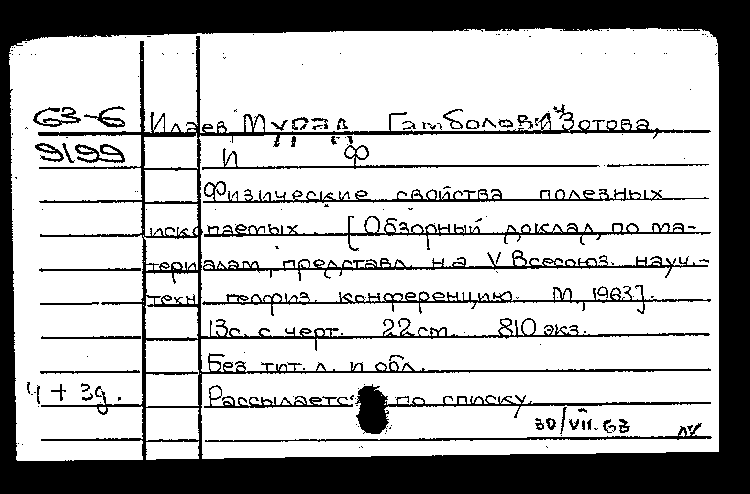 63-6 Илаев, Мурад Гамболович Зотова,
9199 И Ф
Физические свойства полезных
ископаемых. [Обзорный доклад, по ма-
териалам, представл. на V Всесоюз. науч.-
техн. геофиз. конференцию. М., 1963].
13с. с черт. 22 см. 810 экз.
Без тит. л. и обл.
4 + 3д. Рассылается по списку.
30/VII.63